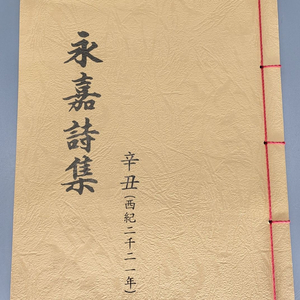 永嘉詩集
辛丑(西紀二千二一年)